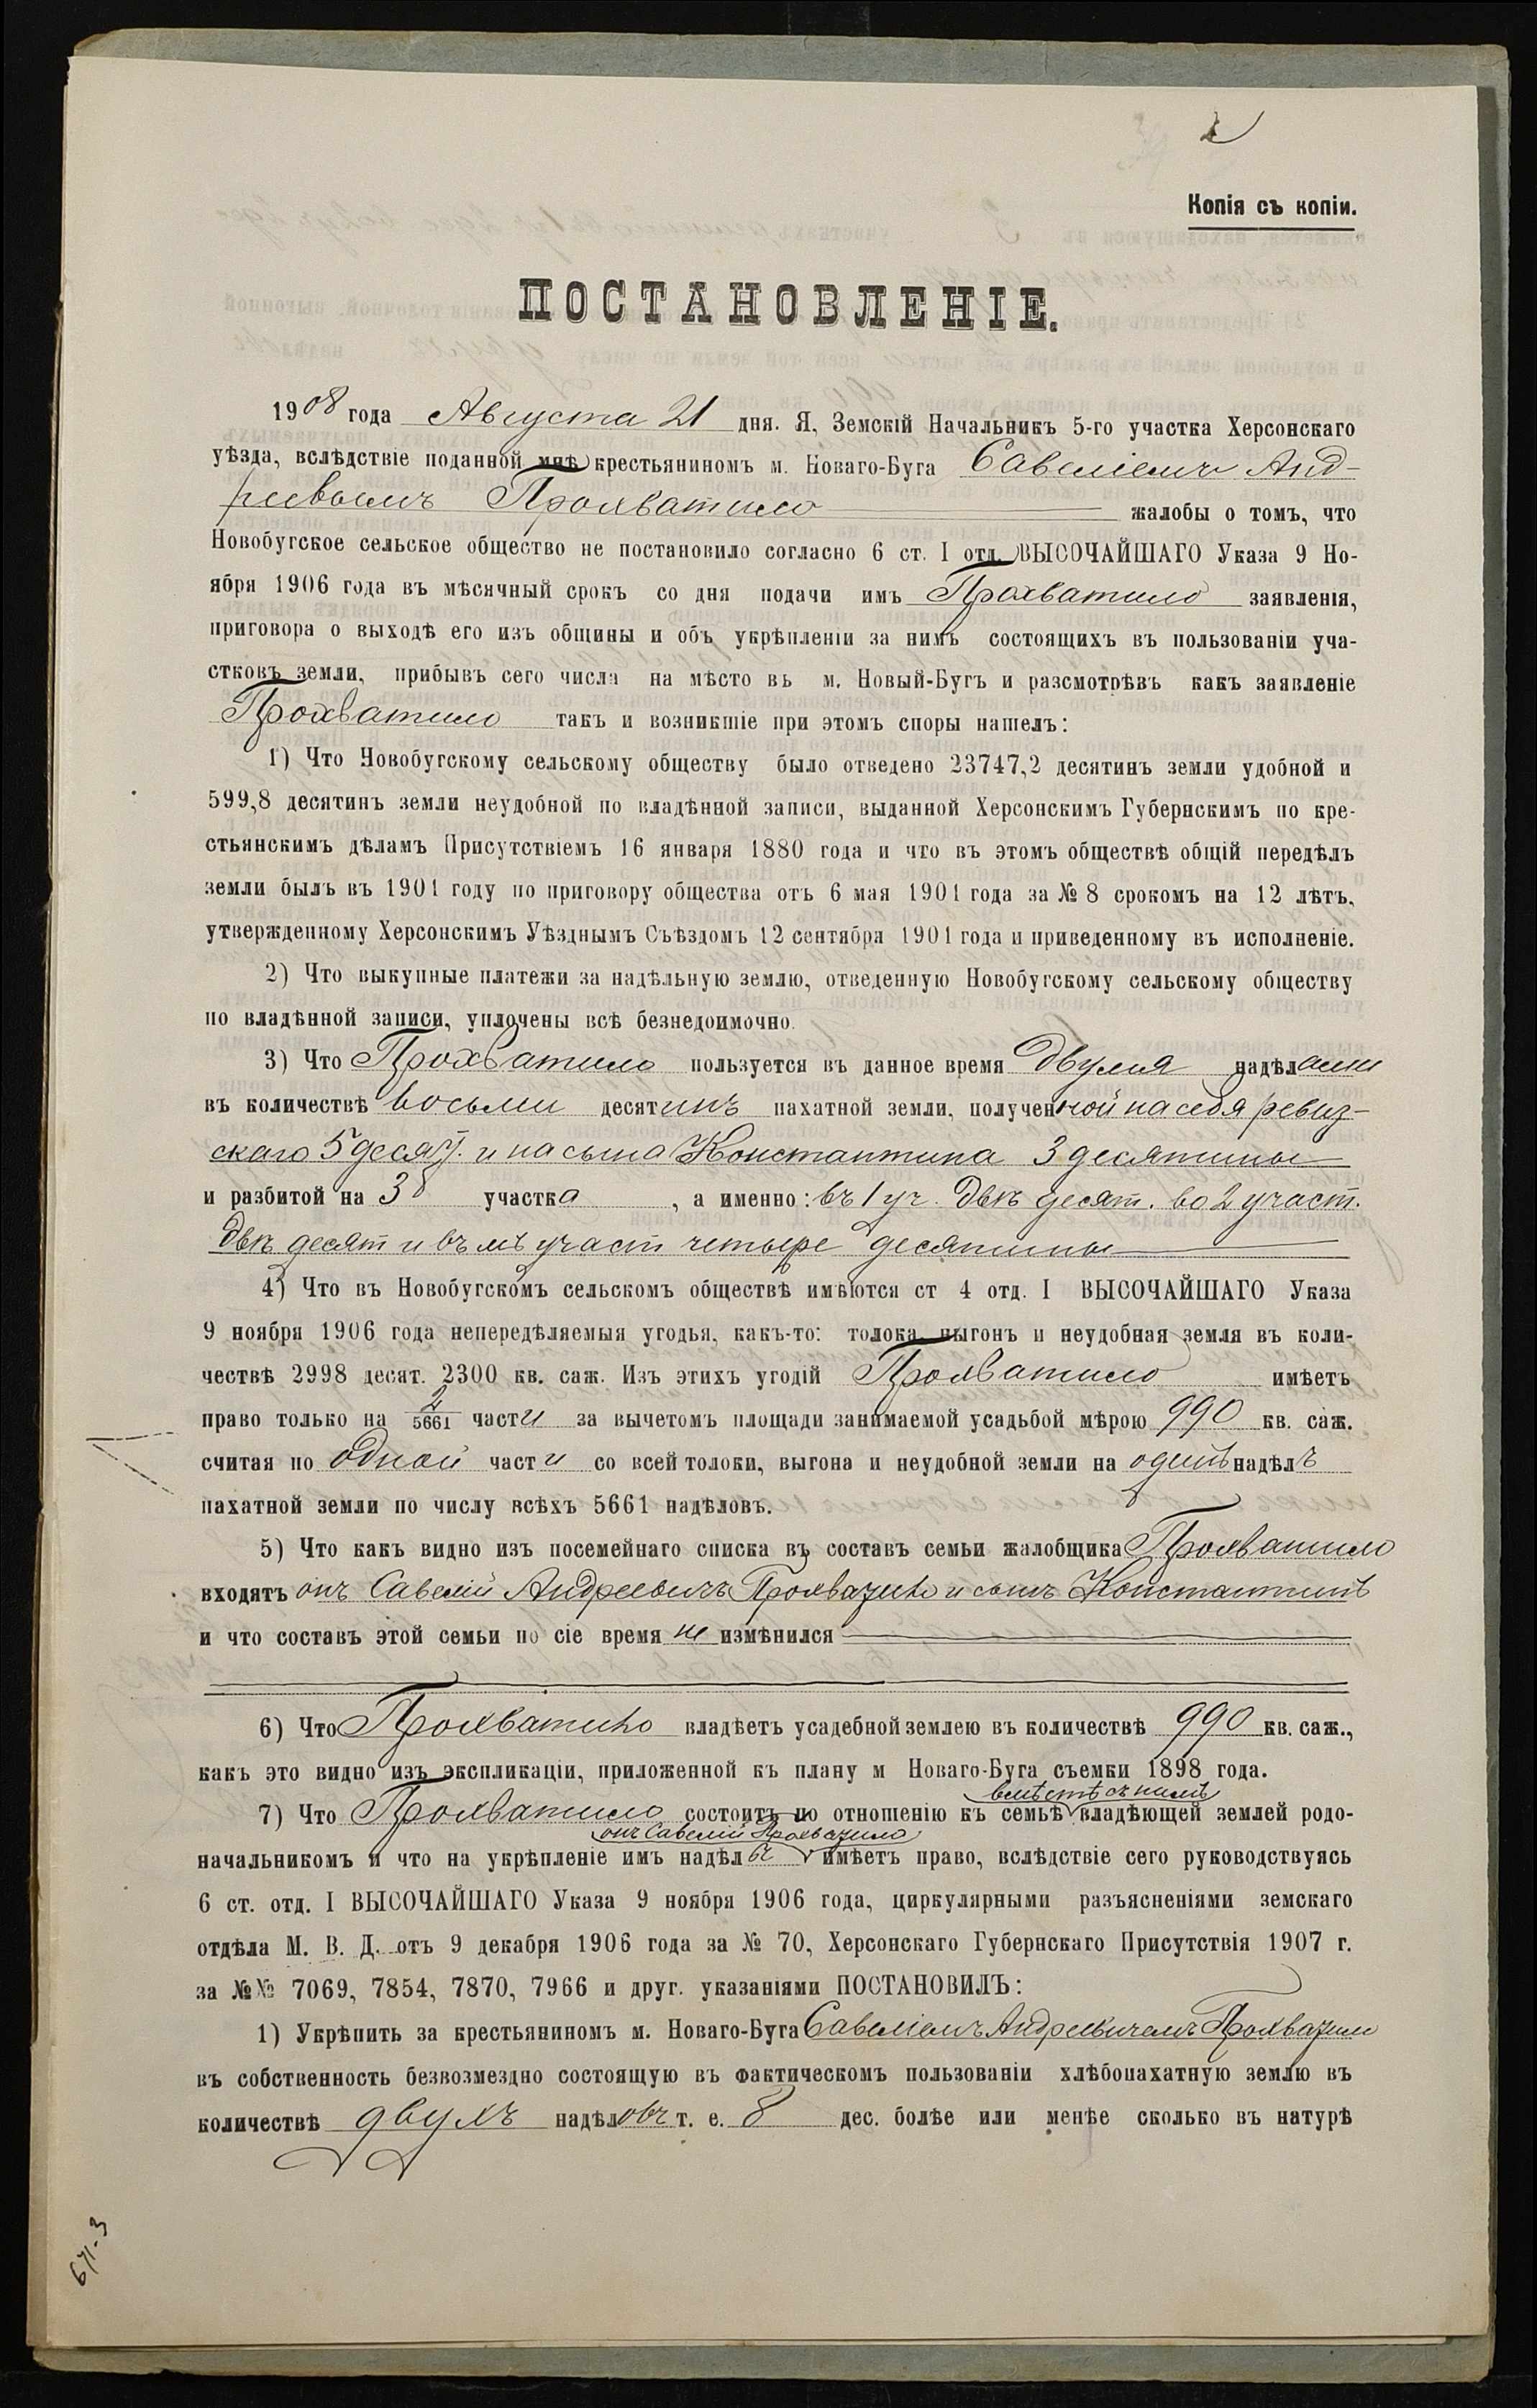 2
Копія съ копіи.
ПОСТАНОВЛЕНІЕ.
1908 года Августа 21 дня. Я, Земскій Начальникъ 5-го участка Херсонскаго
уѣзда, вслѣдствіе поданной мнѣ крестьяниномъ м. Новаго-Буга Савеліемъ Анд-
реевымъ Прохватило жалобы о томъ, что
Новобугское сельское общество не постановило согласно 6 ст. I отд. ВЫСОЧАЙШАГО Указа 9 Но-
ября 1906 года въ мѣсячный срокъ со дня подачи имъ Прохватило заявленія,
приговора о выходѣ его изъ общины и объ укрѣпленіи за нимъ состоящихъ въ пользованіи уча-
стковъ земли, прибывъ сего числа на мѣсто вь м. Новый-Бугъ и разсмотрѣвъ какъ заявленіе
Прохватило такъ и возникшіе при этомъ споры нашелъ:
1) Что Новобугскому сельскому обществу было отведено 23747,2 десятинъ земли удобной и
599,8 десятинъ земли неудобной по владѣнной записи, выданной Херсонскимъ Губернскимъ по кре-
стьянскимъ дѣламъ Присутствіемъ 16 января 1880 года и что въ этомъ обществѣ общій передѣлъ
земли былъ въ 1901 году по приговору общества отъ 6 мая 1901 года за № 8 срокомъ на 12 лѣтъ,
утвержденному Херсонскимъ Уѣзднымъ Съѣздомъ 12 сентября 1901 года и приведенному въ исполненіе.
2) Что выкупные платежи за надѣльную землю, отведенную Новобугскому сельскому обществу
по владѣнной записи, уплочены всѣ безнедоимочно.
3) Что Прохватило пользуется въ данное время двумя надѣлами
въ количествѣ восьми десятинъ пахатной земли, полученной на себя ревиз-
скаго 5 десят. и на сына Константина 3 десятины
и разбитой на 3 участка, а именно: въ 1 уч. двѣ десят. во 2 участ.
двѣ десят и въ 3мъ участ четыре десятины
4) Что въ Новобугскомъ сельскомъ обществѣ имѣются ст 4 отд. I ВЫСОЧАЙШАГО Указа
9 ноября 1906 года непередѣляемыя угодья, какъ-то: толока, выгонъ и неудобная земля въ коли-
чествѣ 2998 десят. 2300 кв. саж. Изъ этихъ угодій Прохватило имѣетъ
право только на 2/5661 части за вычетомъ площади занимаемой усадьбой мѣрою 990 кв. саж.
считая по одной части со всей толоки, выгона и неудобной земли на одинъ надѣлъ
пахатной земли по числу всѣхъ 5661 надѣловъ.
5) Что какъ видно изъ посемейнаго списка въ составъ семьи жалобщика Прохватило
входятъ онъ Савелій Андреевичъ Прохватило и сынъ Константинъ
и что составъ этой семьи по сіе время не измѣнился
6) Что Прохватило владѣетъ усадебной землею въ количествѣ 990 кв. саж.,
какъ это видно изъ экспликаціи, приложенной къ плану м Новаго-Буга съемки 1898 года.
вмѣстѣ съ нимъ
7) Что Прохватило состоитъ по отношенію къ семьѣ владѣющей землей родо-
онъ Савелій Прохватило
начальникомъ и что на укрѣпленіе имъ надѣла имѣетъ право, вслѣдствіе сего руководствуясь
6 ст. отд. I ВЫСОЧАЙШАГО Указа 9 ноября 1906 года, циркулярными разъясненіями земскаго
отдѣла М. В. Д. отъ 9 декабря 1906 года за № 70, Херсонскаго Губернскаго Присутствія 1907 г.
за №№ 7069, 7854, 7870, 7966 и друг. указаніями ПОСТАНОВИЛЪ:
1) Укрѣпить за крестьяниномъ м. Новаго-Буга Савеліемъ Андреевичемъ Прохватило
въ собственность безвозмездно состоящую въ фактическомъ пользованіи хлѣбопахатную землю въ
количествѣ двухъ надѣловъ т. е. 8 дес. болѣе или менѣе сколько въ натурѣ
671-3